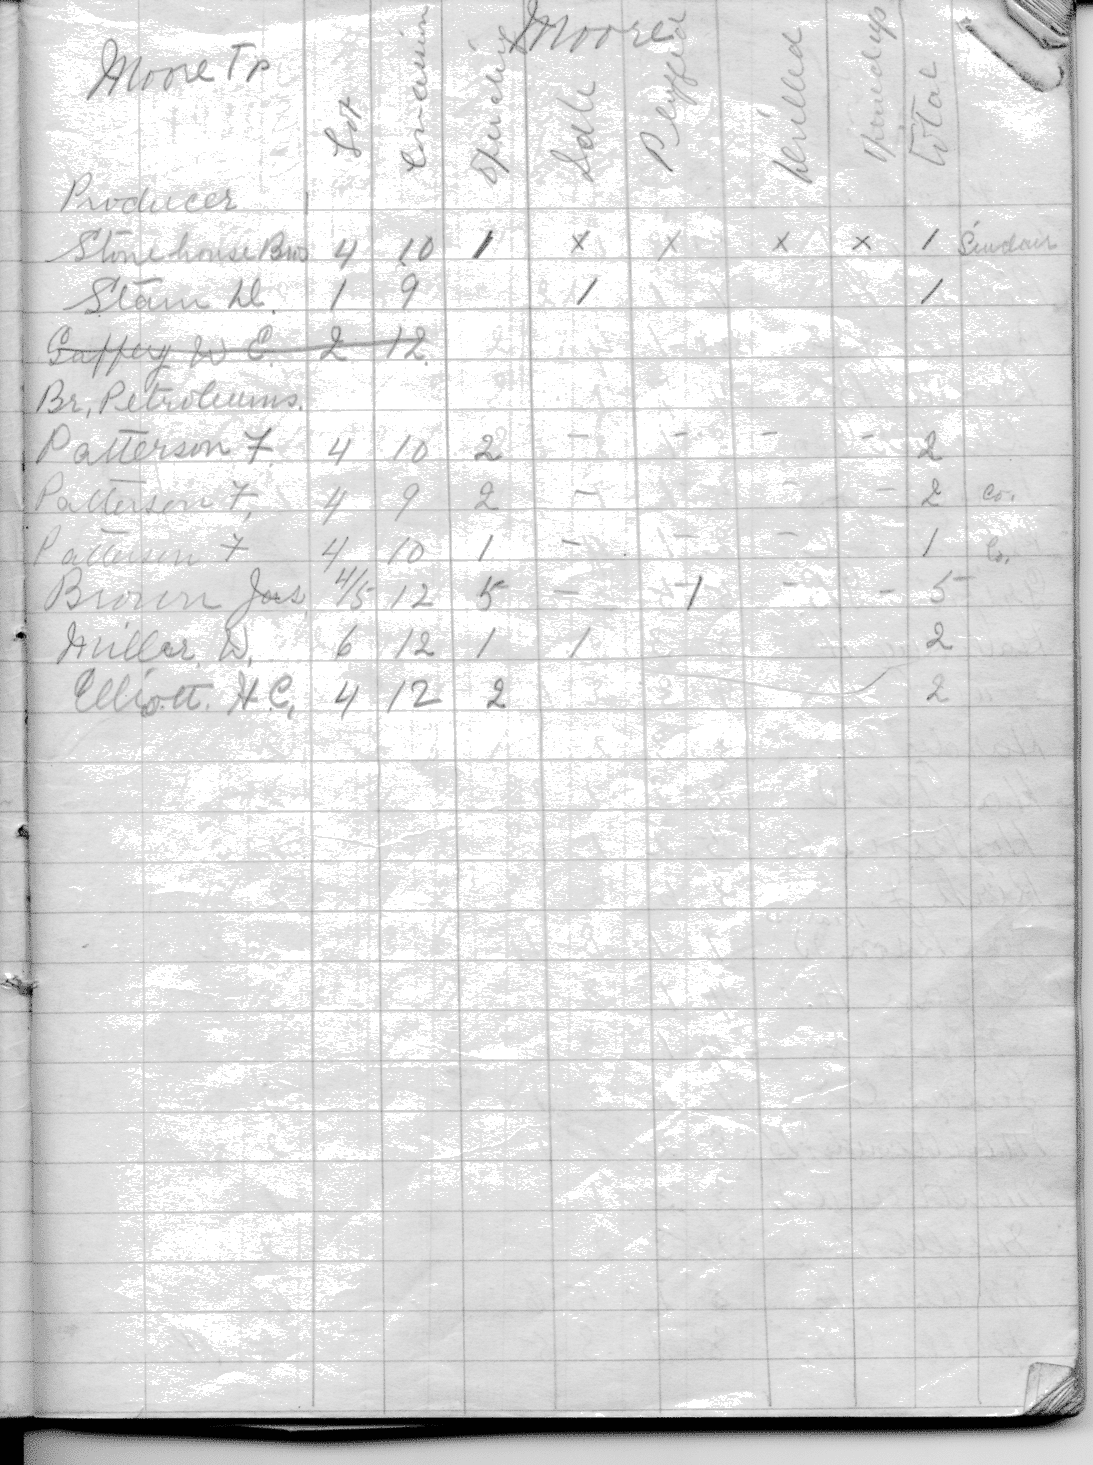 Moore
Moore Tp
Lot Concession Operating Idle Plugged Drilled Opened up Total
Producer
Stonehouse Bros 4 10 1 x x x x 1 Sinclair
Stam D. 1 9 1 1
W E. 2 12
Br. Petroleums.
Patterson F. 4 10 2 - - - - 2
Patterson F. 4 9 2 - - - 2 Co.
Patterson F 4 10 1 - - - 1 Co.
Brown Jas 4/5 12 5 - 1 - - 5
Miller. D. 6 12 1 1 2
Elliott. H.C. 4 12 2 2